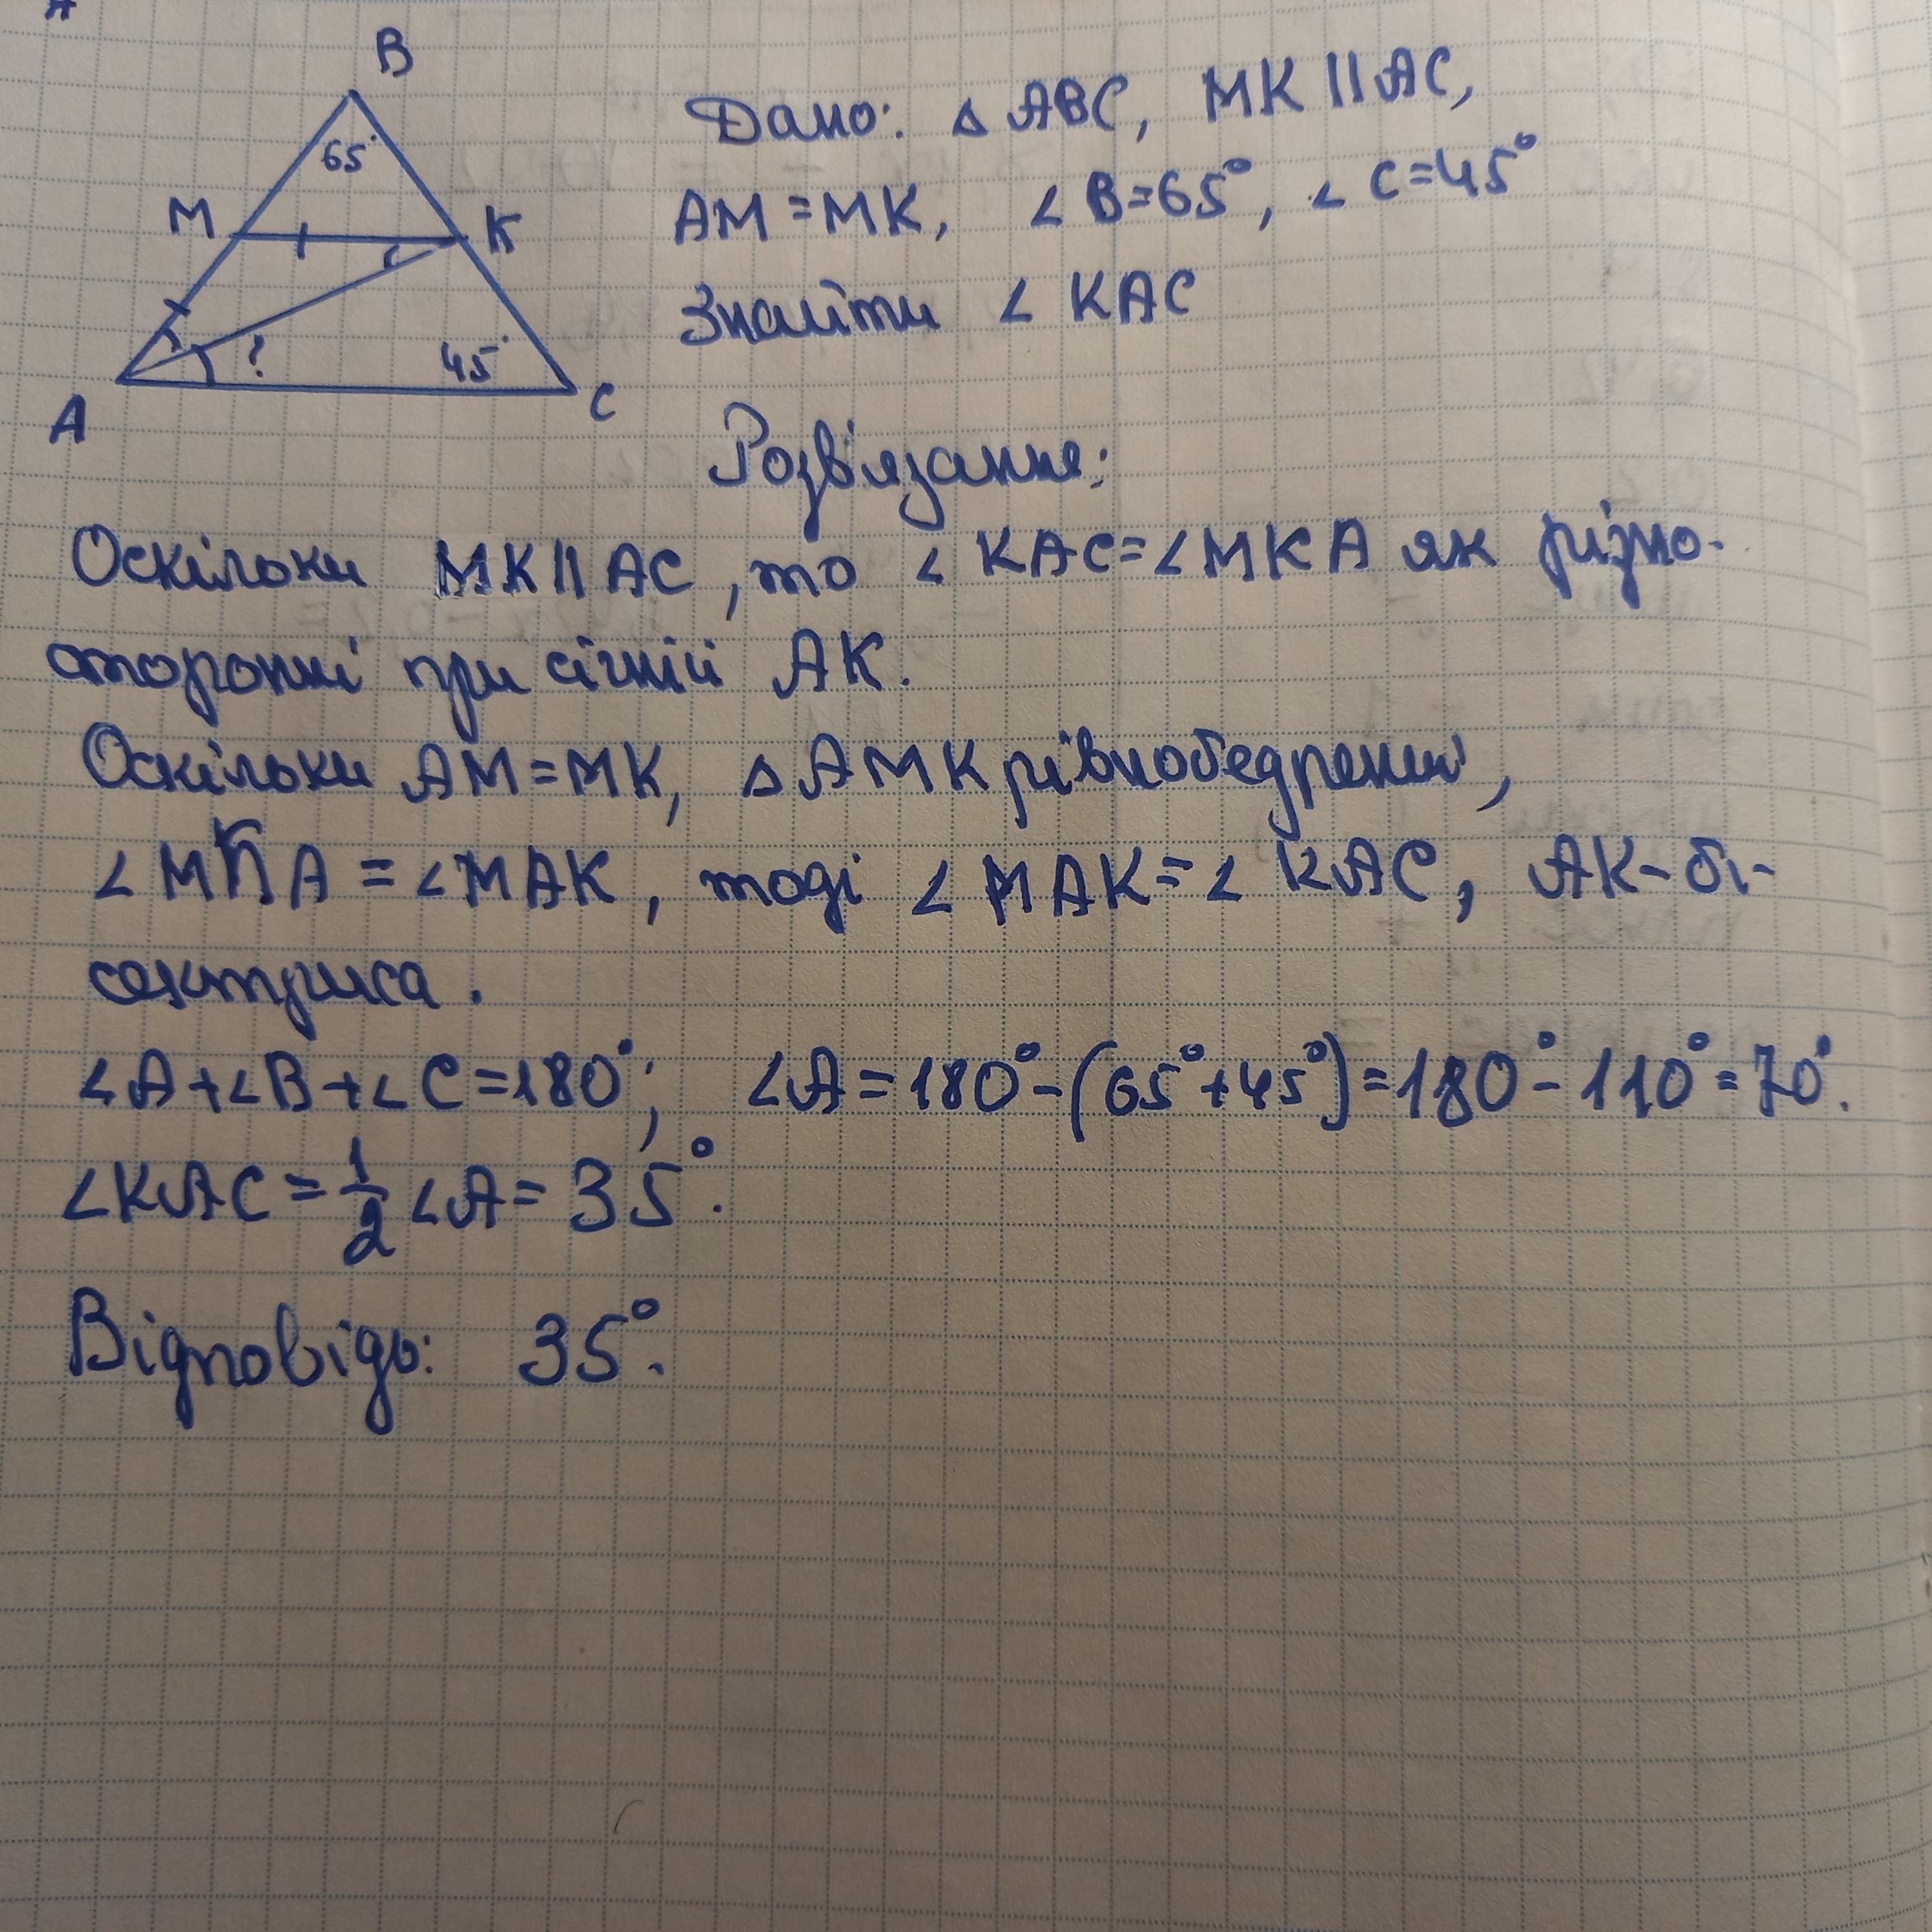 B
65°
M
K
?
45°
A
C
Дано: △ ABC, MK || AC,
AM = MK, ∠ B=65°, ∠ C=45°
Знайти ∠ KAC
Розв'язання:
Оскільки MK || AC, то ∠ KAC=∠MKA як різно-
сторонні при січній AK.
Оскільки AM=MK, △ AMK рівнобедрений,
∠ MKA = ∠MAK, тоді ∠ MAK = ∠ KAC, AK- бі-
сектриса.
∠A+∠B+∠C=180°; ∠A=180°-(65°+45°)=180°-110°=70°.
∠KAC = 1/2 ∠A= 35°.
Відповідь: 35°.